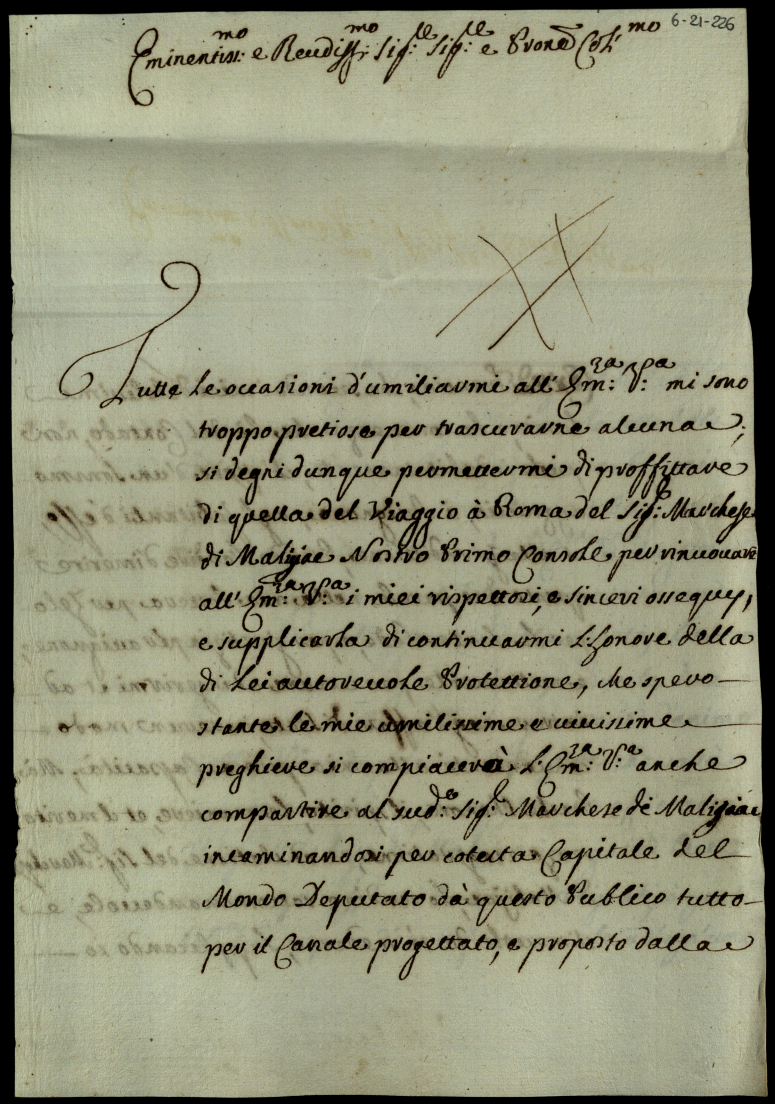 6-21-226
Eminentiss:mo e Reudiss:mo Sig:re Sig:re e Prone Col:mo
Tutte le occasioni d'umiliarmi all' Em:za V:ra mi sono
troppo pretiose per trascurarne alcuna;
si degni dunque permettermi di proffittare
di quella del Viaggio à Roma del Sig:r Marchese
di Malijac Nostro Primo Console per rinuouare
all' Em:za V:ra i miei rispettosi, e sinceri ossequy,
e supplicarla di continuarmi l'honore della
di Lei autoreuole Protettione, che spero
stante le mie umilissime e uiuissime
preghiere si compiacerà l'Em:za V:ra anche
compartire al sud:o Sig:r Marchese de Malijac
incaminandosi per cotesta Capitale del
Mondo Deputato dà questo Publico tutto
per il Canale progettato, e proposto dalla